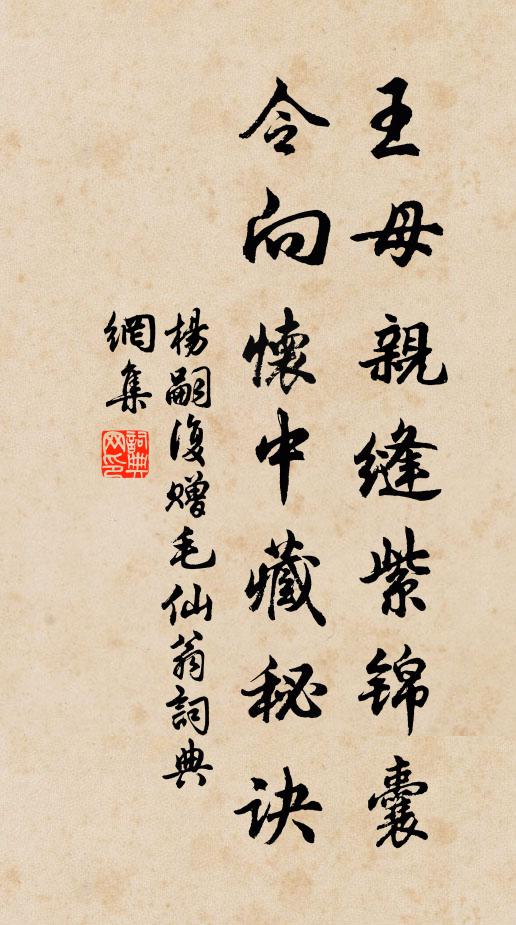 王母親縫紫锦囊
令向懷中藏秘诀
楊嗣復赠毛仙翁詞典
網集
詞典网印